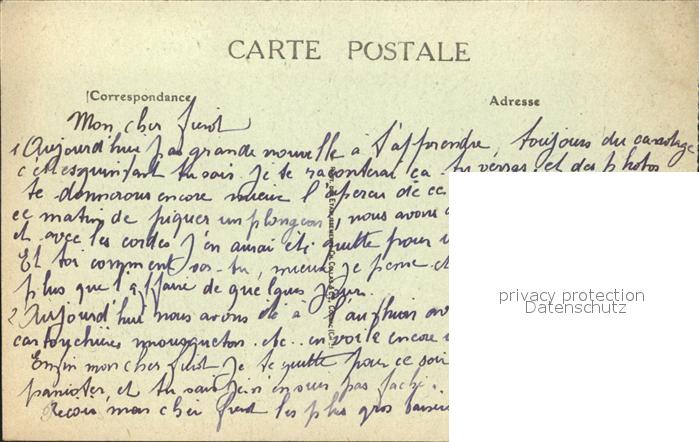 CARTE POSTALE
Correspondance
Adresse
Mon cher
1 Aujourd'hui pas grande nouvelle à t'apprendre, toujours du canotage
c'est esquintant tu sais. je te raconterai ça tu verras et des photos
te donnerons encore mieux l'aperçu de ce
ce matin de piquer un plongeon, nous avons
et avec les cordes j'en aurai été quitte pour
Et toi comment vas-tu, mieux je pense et
plus que l'affaire de quelques jours.
2 Aujourd'hui nous avons été à
cartouchières mousqueton. etc.. en voilà encore
Enfin mon cher je te quitte pour ce soir
et tu sais j'en suis pas fâché.
Reçois mon cher les plus gros baisers
privacy protection
Datenschutz